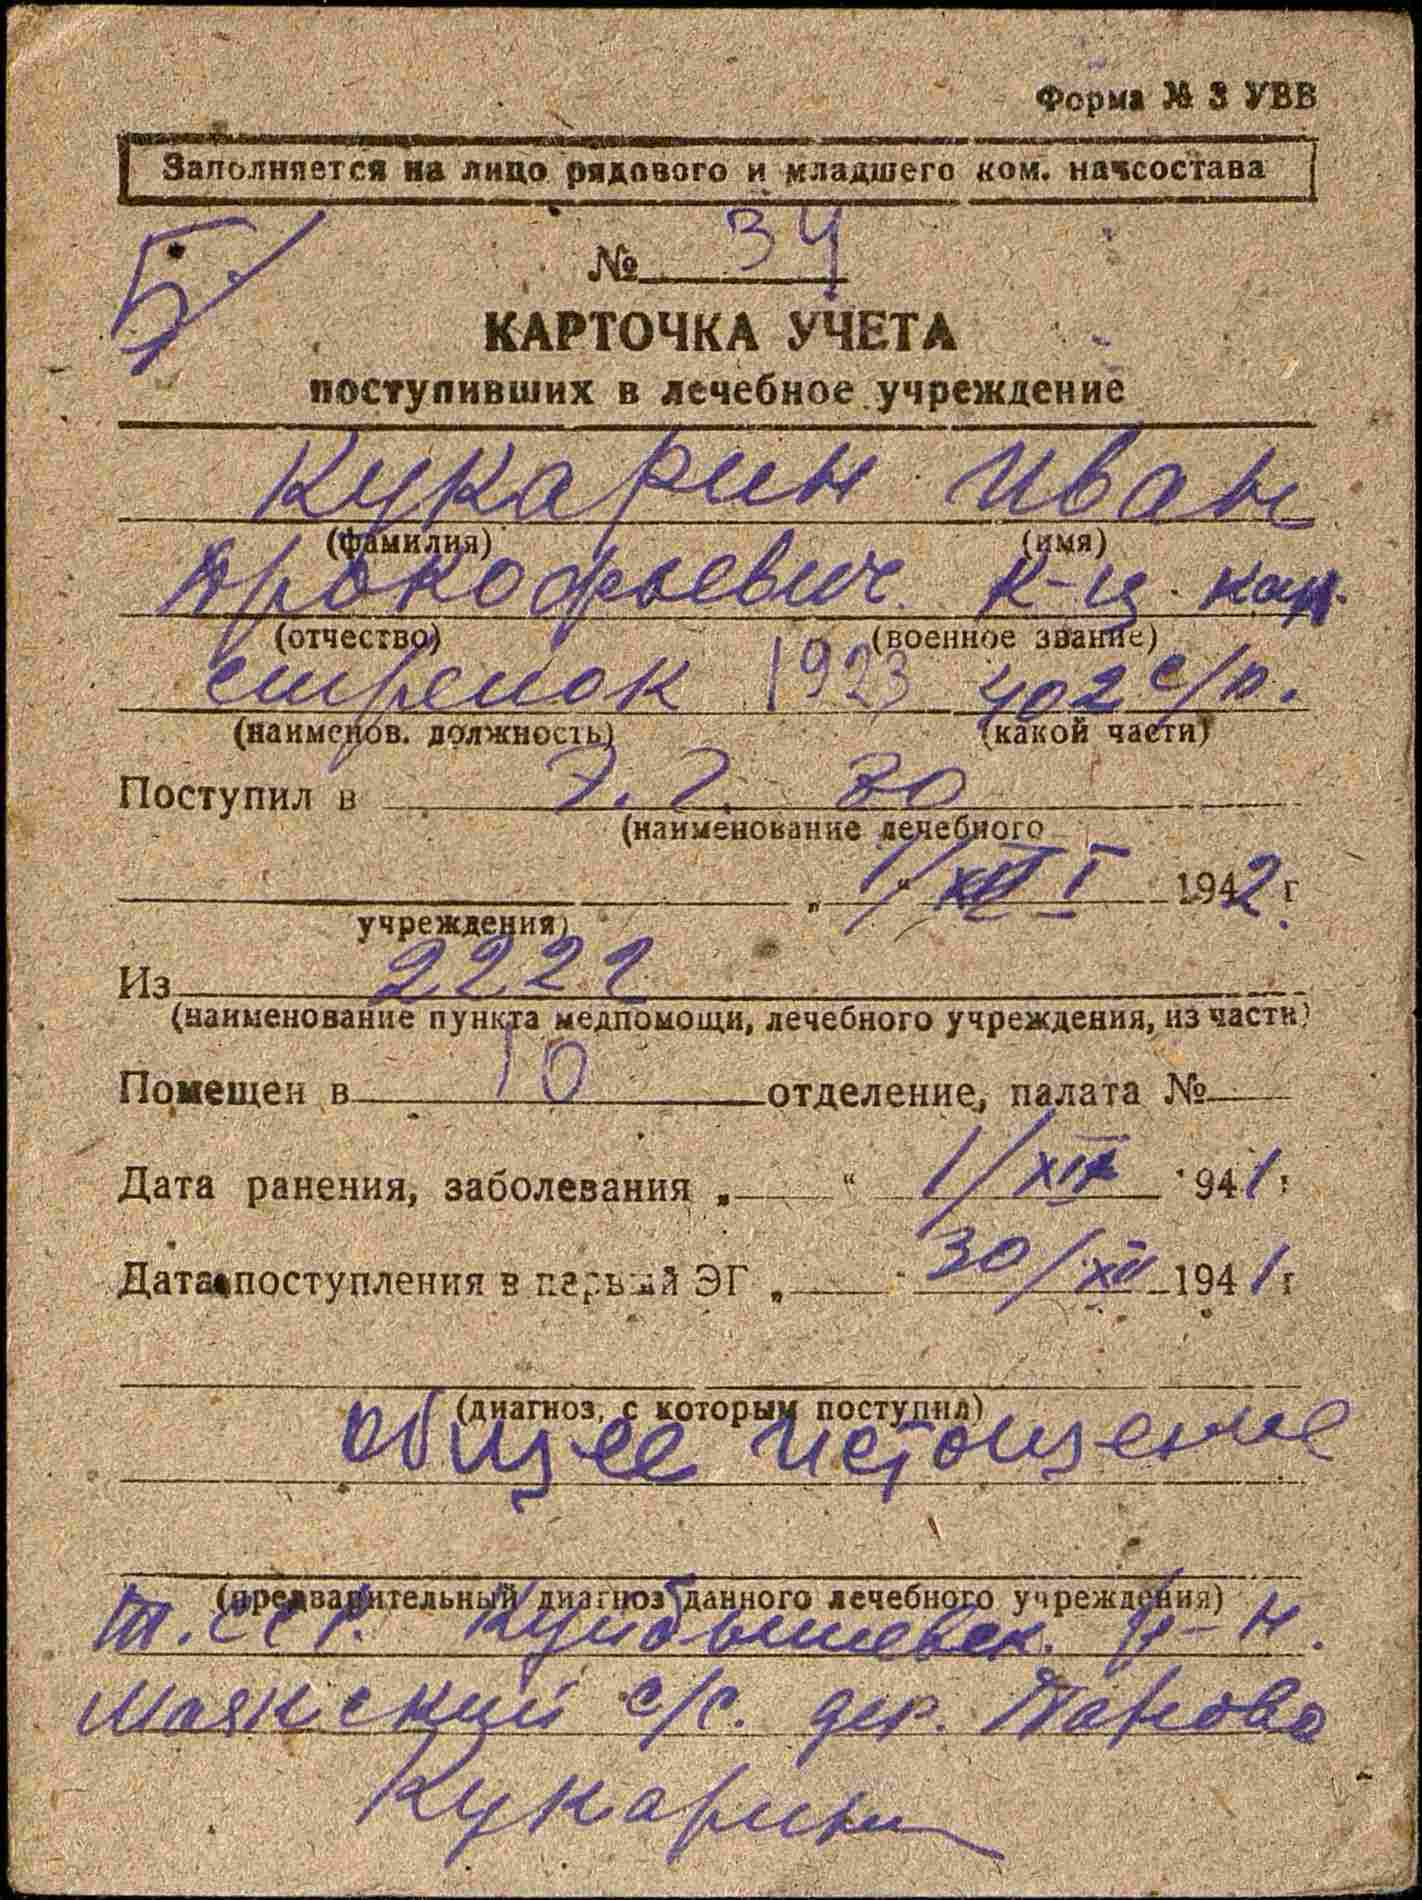 Форма № 3 УВВ
Заполняется на лицо рядового и младшего ком. начсостава
5/
№ 34
КАРТОЧКА УЧЕТА
поступивших в лечебное учреждение
Кукарин Иван
(фамилия) (имя)
Прокофьевич. К-ц.
(отчество) (военное звание)
стрелок 1923 402 с/п.
(наименов. должность) (какой части)
Поступил в Э. Г. 30
(наименование лечебного
„ 1/ I 1942 г.
учреждения)
Из 2222
(наименование пункта медпомощи, лечебного учреждения, из части)
Помещен в 10 отделение, палата №
Дата ранения, заболевания „ “ 1/XII 1941 г
Дата поступления в первый ЭГ „ 30/XII 1941 г
(диагноз, с которым поступил)
Общее истощение
(предварительный диагноз данного лечебного учреждения)
Т.ССР. Куйбышевск. р-н.
Маякский с/с. дер.
Кукарин